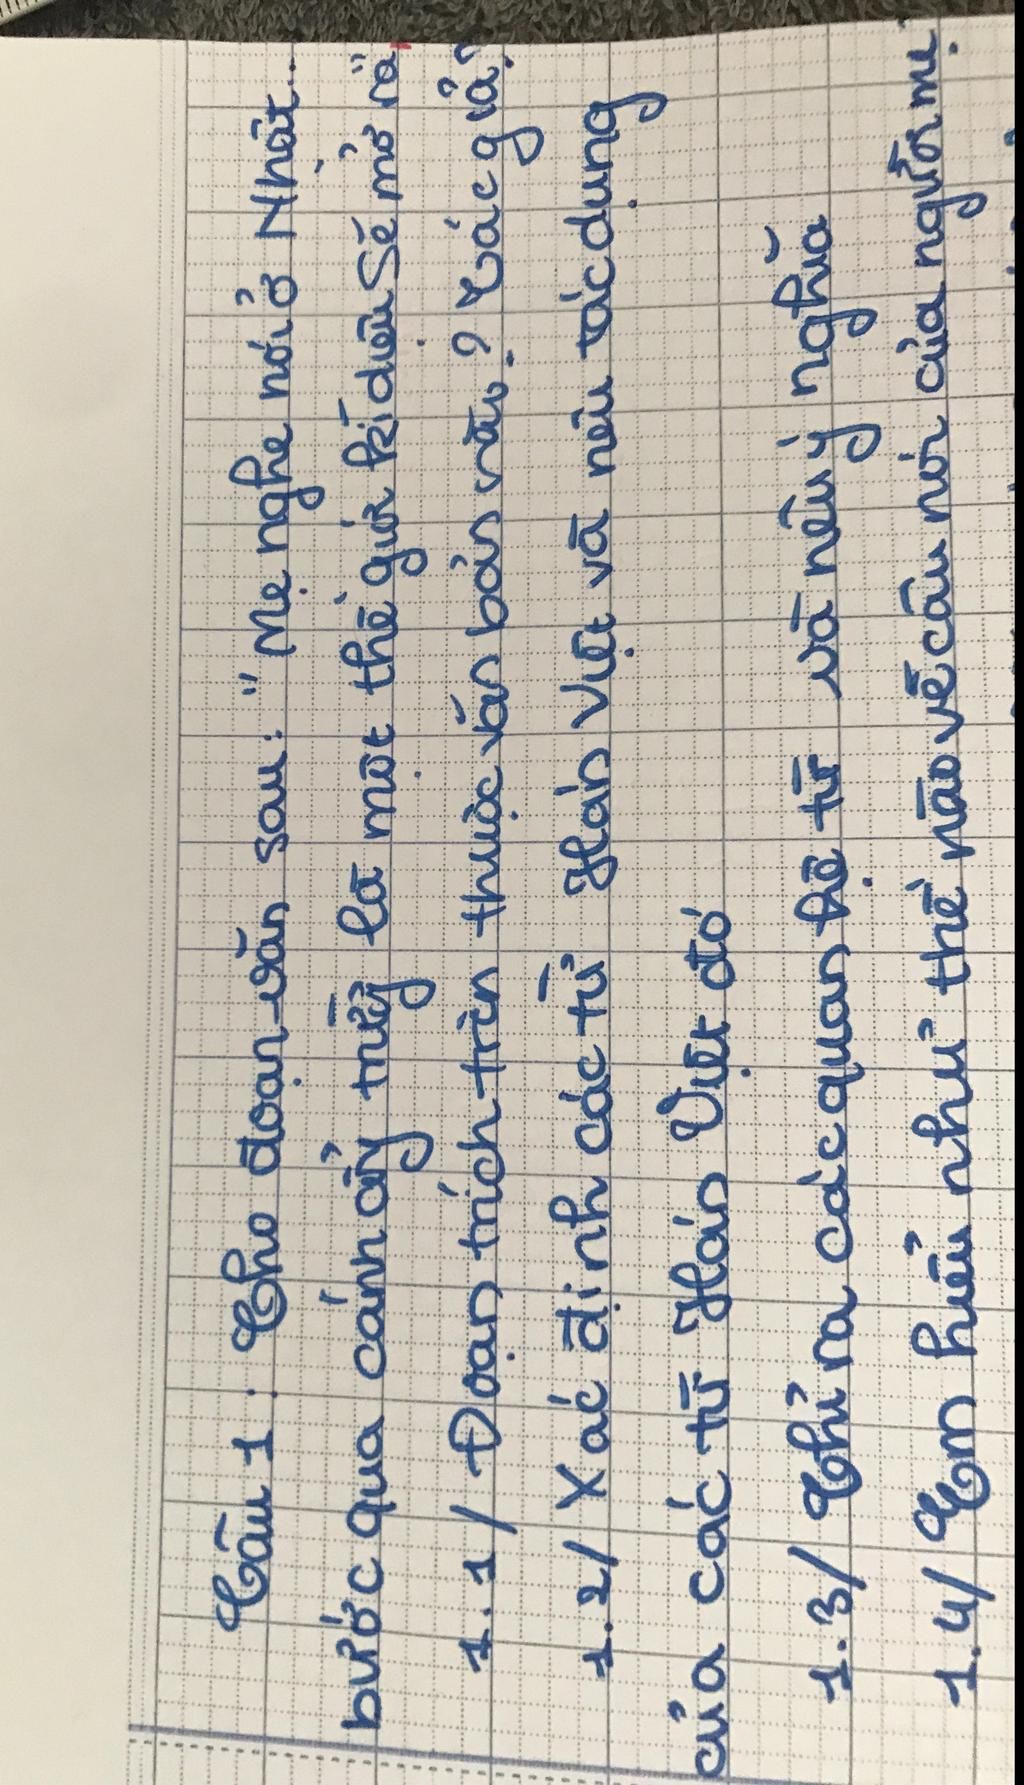 Câu 1: Cho đoạn văn sau: "Mẹ nghe nói ở Nhật...
bước qua cánh cổng trường là một thế giới kì diệu sẽ mở ra"
1.1/ Đoạn trích trên thuộc văn bản nào? Tác giả?
1.2/ Xác định các từ Hán Việt và nêu tác dụng
của các từ Hán Việt đó
1.3/ Chỉ ra các quan hệ từ và nêu ý nghĩa
1.4/ Em hiểu như thế nào về câu nói của người mẹ.